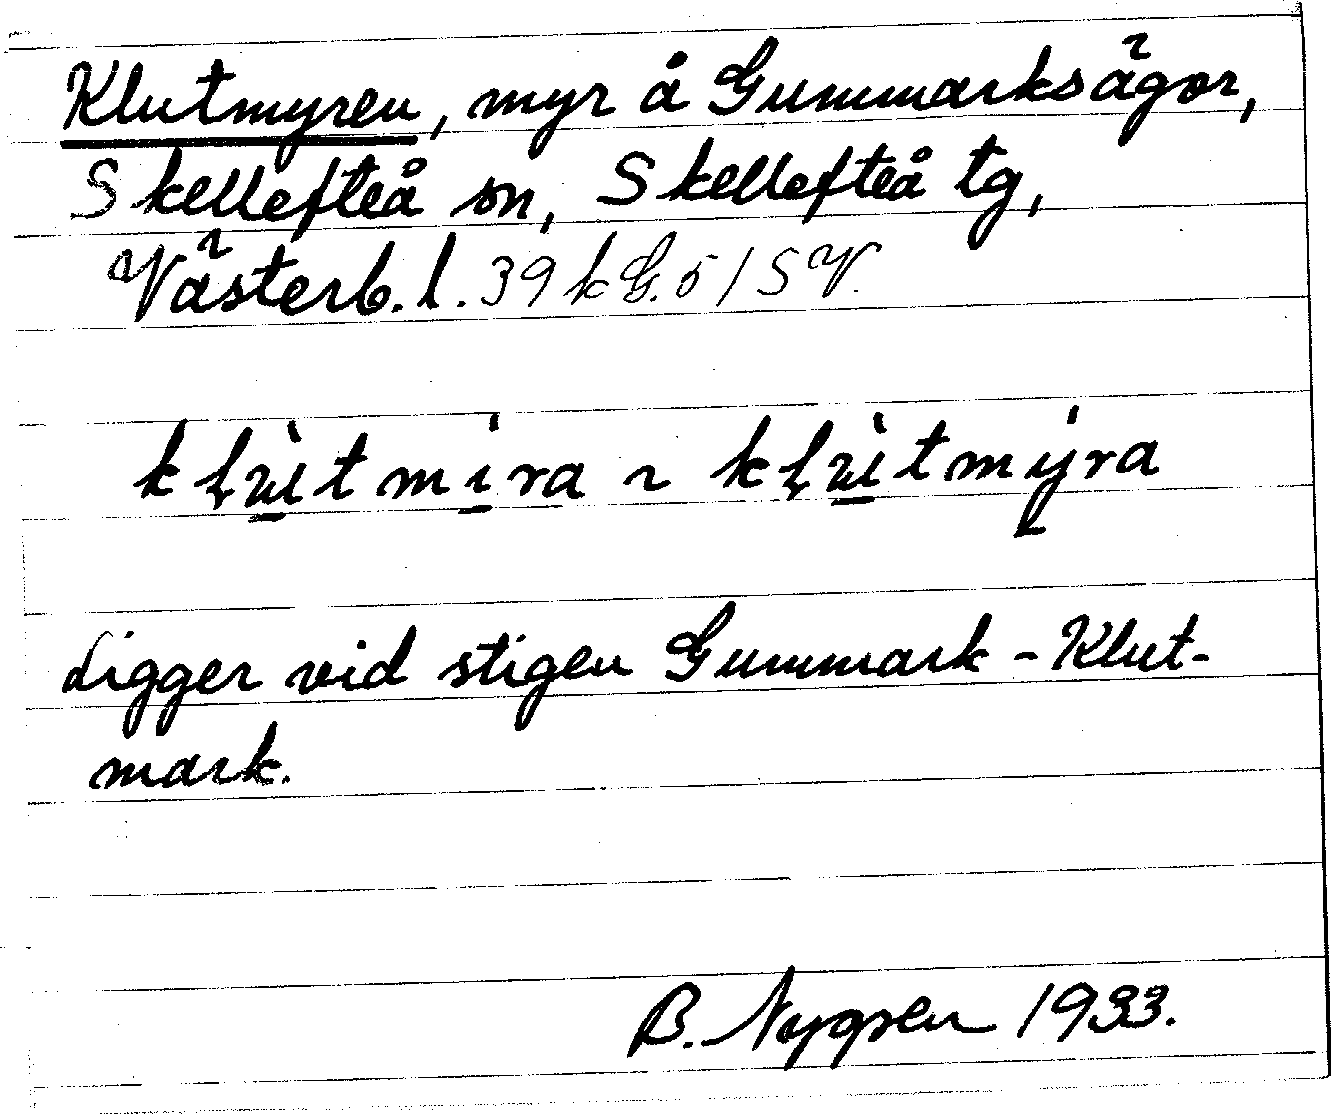 Klutmyren, myr å Gummarksägor,
Skellefteå sn, Skellefteå tg,
Västerb. l. 39 k G. 5 / S V.
klu̠̇tmi̠ra ~ klu̠̇tmy̠ra
Ligger vid stigen Gummark - Klut-
mark.
B. Nygren 1933.